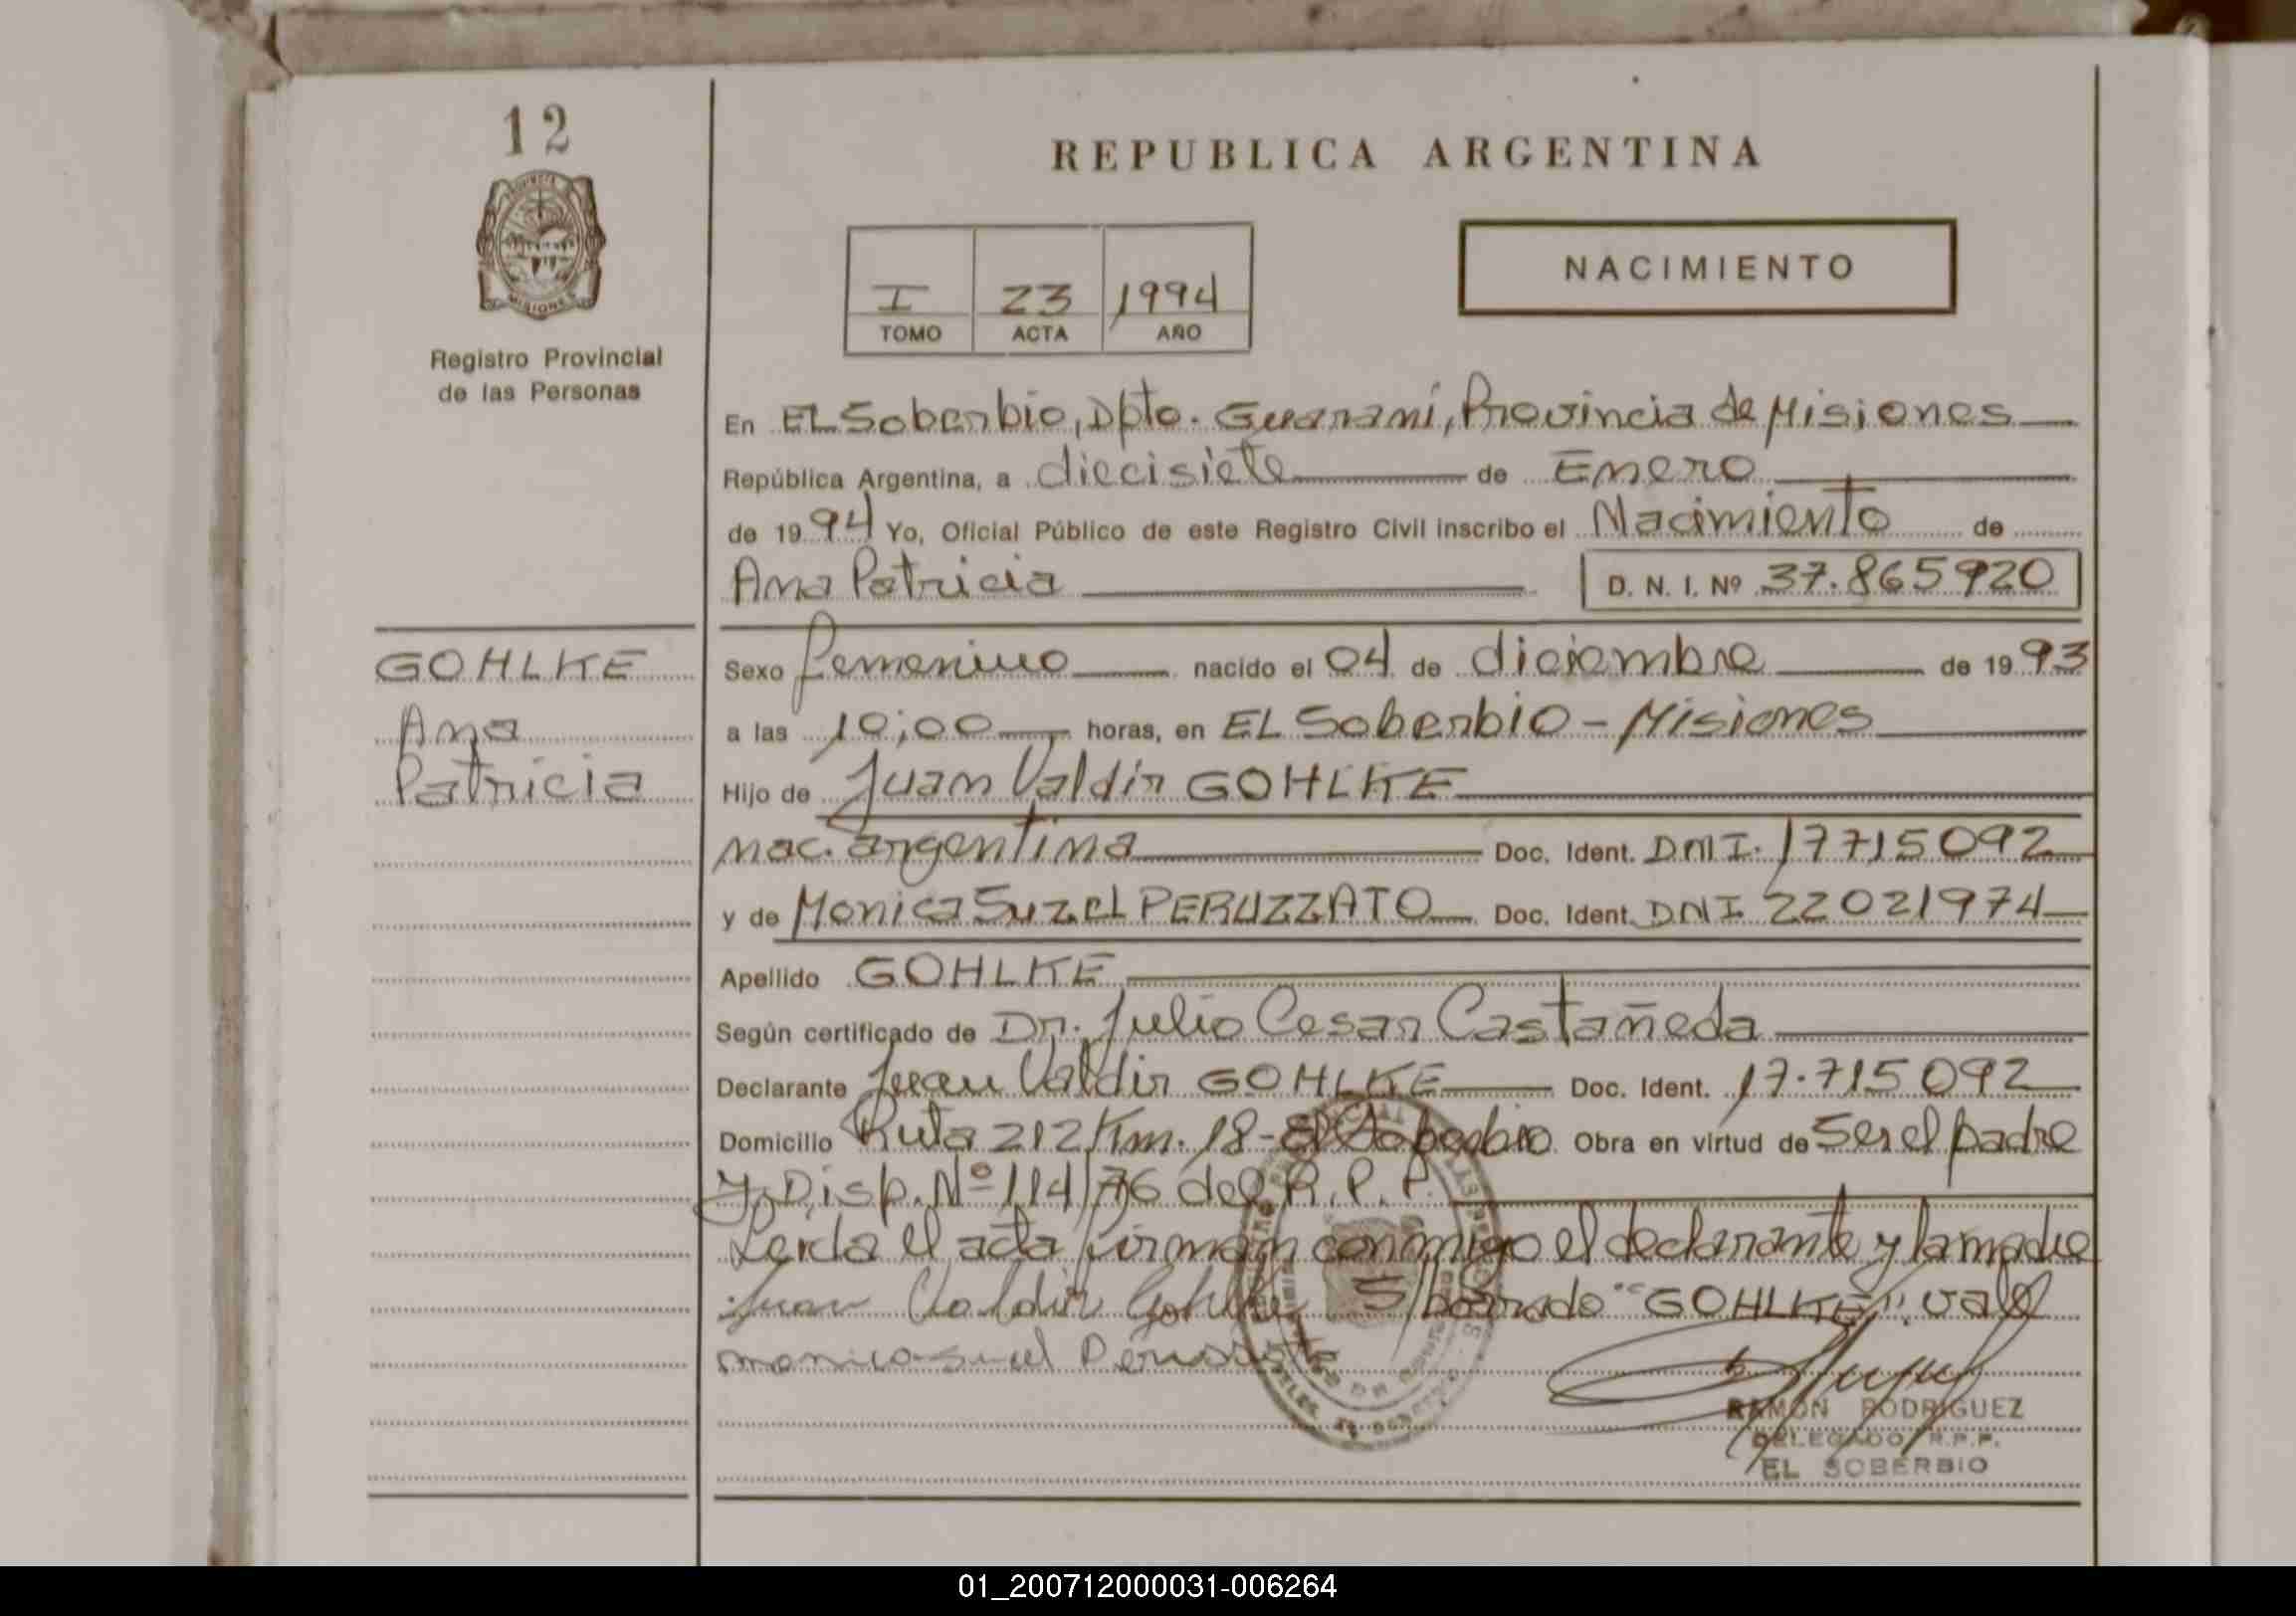 12
REPUBLICA ARGENTINA
PROVINCIA
MISIONES
NACIMIENTO
I 23 1994
TOMO ACTA AÑO
Registro Provincial
de las Personas
En EL Soberbio, Dpto. Guaraní, Provincia de Misiones
República Argentina, a diecisiete de Enero
de 1994 Yo, Oficial Público de este Registro Civil inscribo el Nacimiento de
Ana Patricia D. N. I. Nº 37.865920
GOHLKE
Ana
Patricia
Sexo femenino nacido el 04 de diciembre de 1993
a las 10;00 horas, en EL Soberbio - Misiones
Hijo de Juan Valdir GOHLKE
nac. argentina Doc. Ident. DNI. 17715092
y de Monica Suzel PERUZZATO Doc. Ident. DNI 22021974
Apellido GOHLKE
Según certificado de Dr. Julio Cesar Castañeda
Declarante Juan Valdir GOHLKE Doc. Ident. 17.715092
Domicilio Ruta 212 Km. 18 - El Soberbio Obra en virtud de Ser el padre
y Disp. Nº 114/76 del R.P.P.
Leida el acta firman conmigo el declarante y la madre
Juan Valdir Gohlke S/borrado "GOHLKE" vale
monica suzel
RAMON RODRIGUEZ
DELEGADO R.P.P.
EL SOBERBIO
01_200712000031-006264